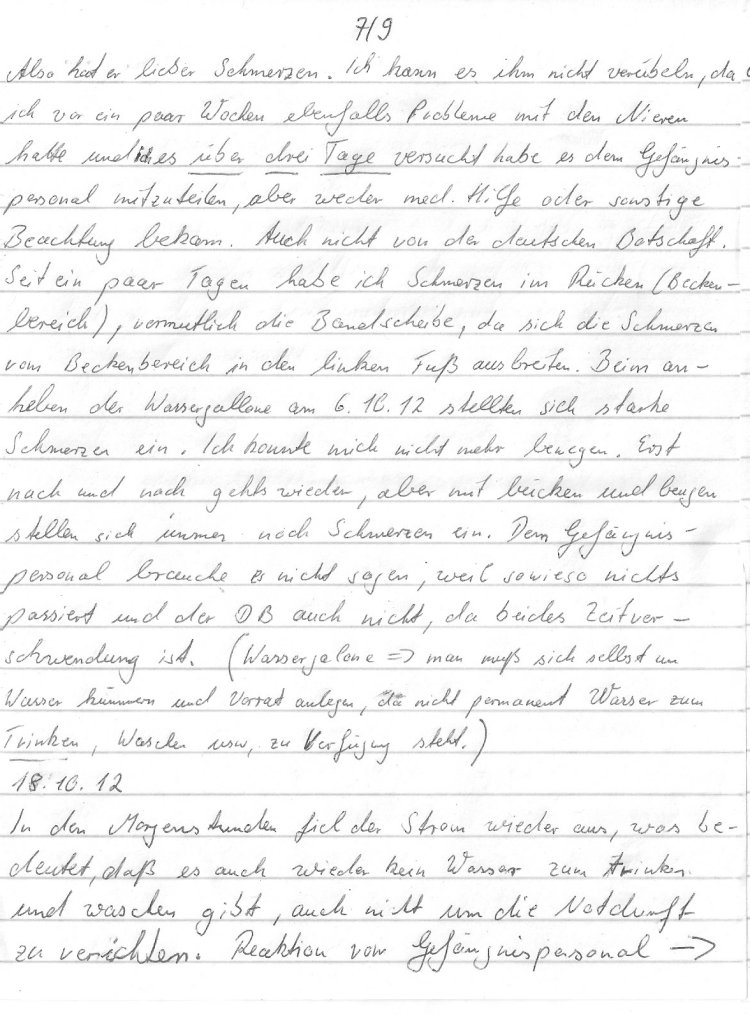 7/9
Also hat er lieber Schmerzen. Ich kann es ihm nicht verübeln, da
ich vor ein paar Wochen ebenfalls Probleme mit den Nieren
hatte und ich es über drei Tage versucht habe es dem Gefängnis-
personal mitzuteilen, aber weder med. Hilfe oder sonstige
Beachtung bekam. Auch nicht von der deutschen Botschaft.
Seit ein paar Tagen habe ich Schmerzen im Rücken (Becken-
bereich), vermutlich die Bandscheibe, da sich die Schmerzen
vom Beckenbereich in den linken Fuß ausbreiten. Beim an-
heben der Wassergallone am 6.10.12 stellten sich starke
Schmerzen ein. Ich konnte mich nicht mehr bewegen. Erst
nach und nach gehts wieder, aber mit bücken und beugen
stellen sich immer noch Schmerzen ein. Dem Gefängnis-
personal brauche es nicht sagen, weil sowieso nichts
passiert und der DB auch nicht, da beides Zeitver-
schwendung ist. (Wassergalone => man muß sich selbst um
Wasser kümmern und Vorrat anlegen, da nicht permanent Wasser zum
Trinken, Waschen usw, zu Verfügung steht.)
18.10.12
In den Morgenstunden fiel der Strom wieder aus, was be-
deutet, daß es auch wieder kein Wasser zum trinken
und waschen gibt, auch nicht um die Notdurft
zu verichten. Reaktion vom Gefängnispersonal →